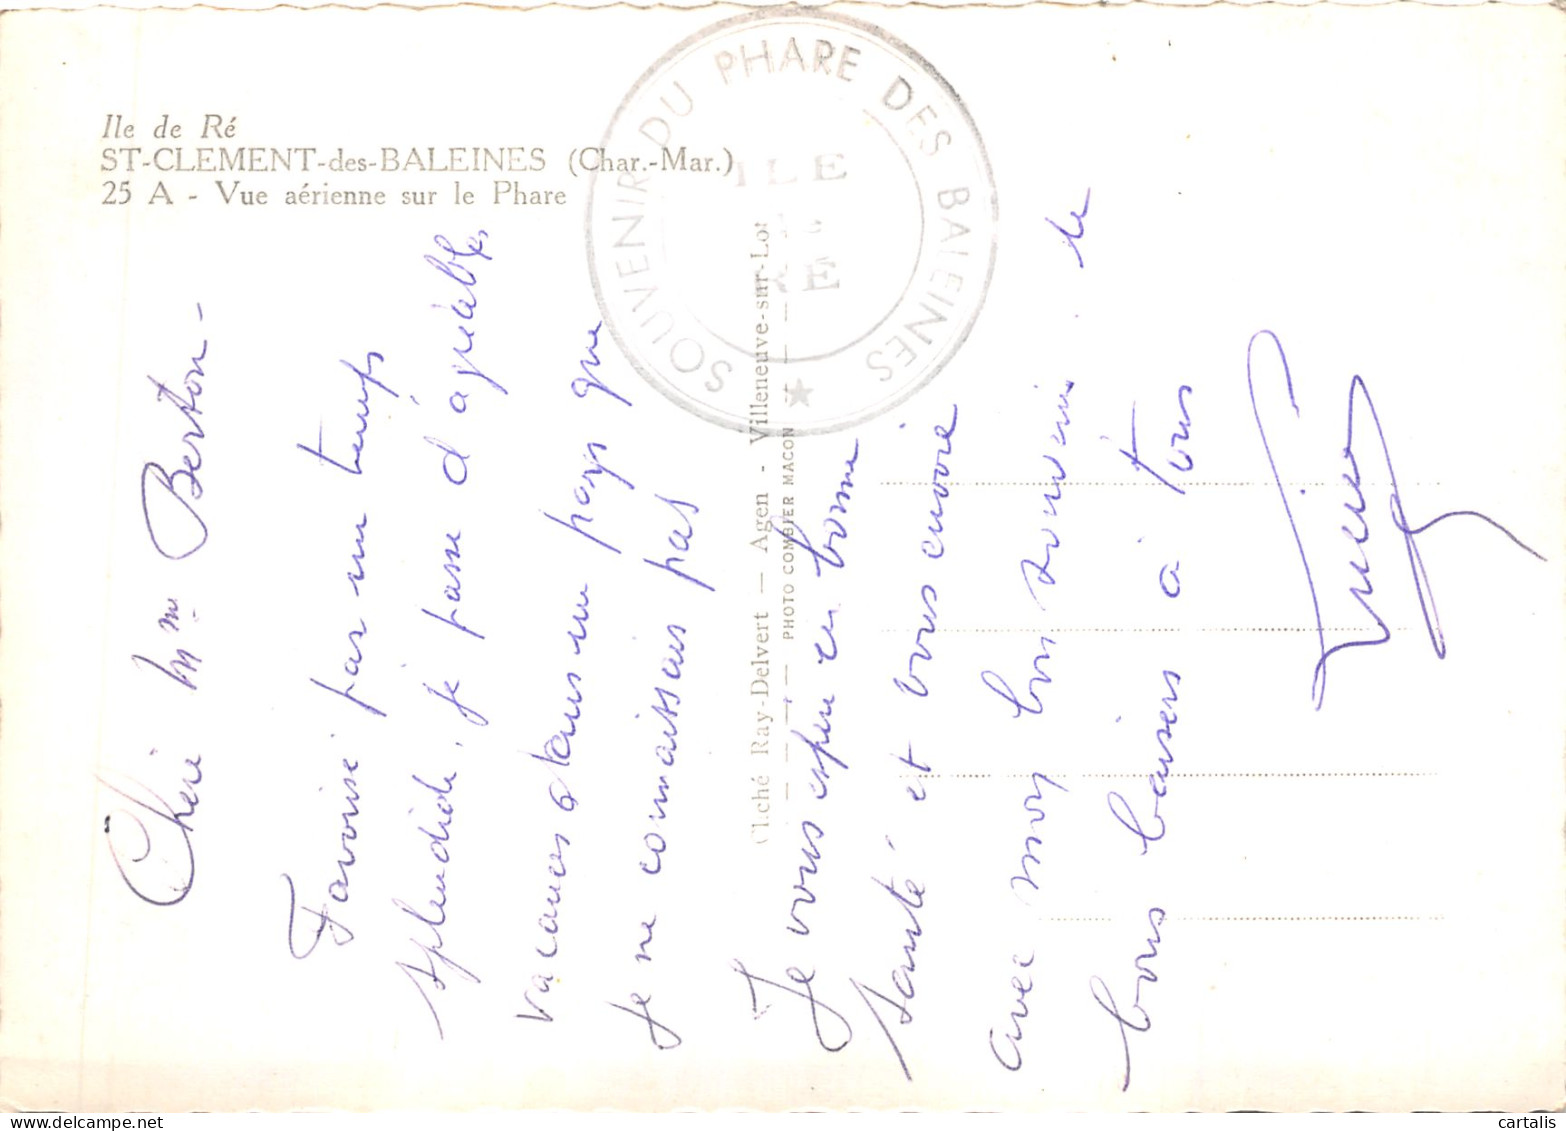 Ile de Ré
ST-CLEMENT-des-BALEINES (Char.-Mar.)
25 A - Vue aérienne sur le Phare
SOUVENIR DU PHARE DES BALEINES
ILE
RE
Cliché Ray-Delvert — Agen - Villeneuve-sur-Lot
PHOTO COMBIER MACON
Chère Mme Berton -
Favorisé par un temps
splendide, je passe d'agréables
vacances dans un pays que
je ne connaissais pas
Je vous espère en bonne
santé, et vous envoie
avec mon bon souvenir de
bons baisers à tous
cartalis